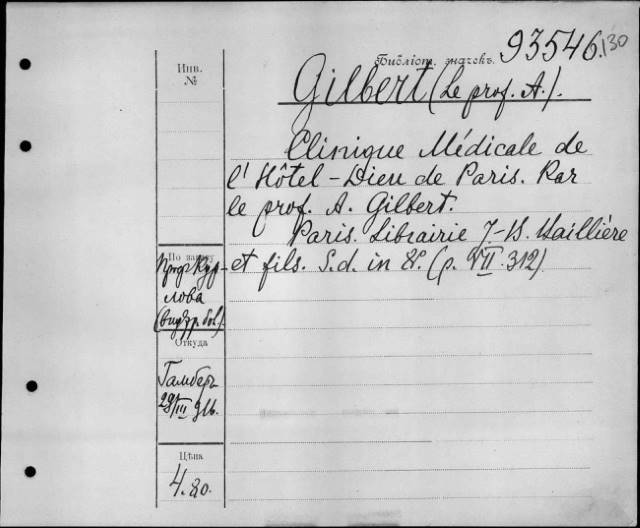 93546.130
Инв. №
Библіот. значекъ.
Gilbert (Le prof. A.).
Clinique Médicale de
l'Hôtel-Dieu de Paris. Par
le prof. A. Gilbert.
Paris. Librairie J-B. Baillière
et fils. S.d. in 8°. (p. VII. 312)
По заказу
Проф Кур-
лова
Откуда
29/III
Цѣна
4.80.